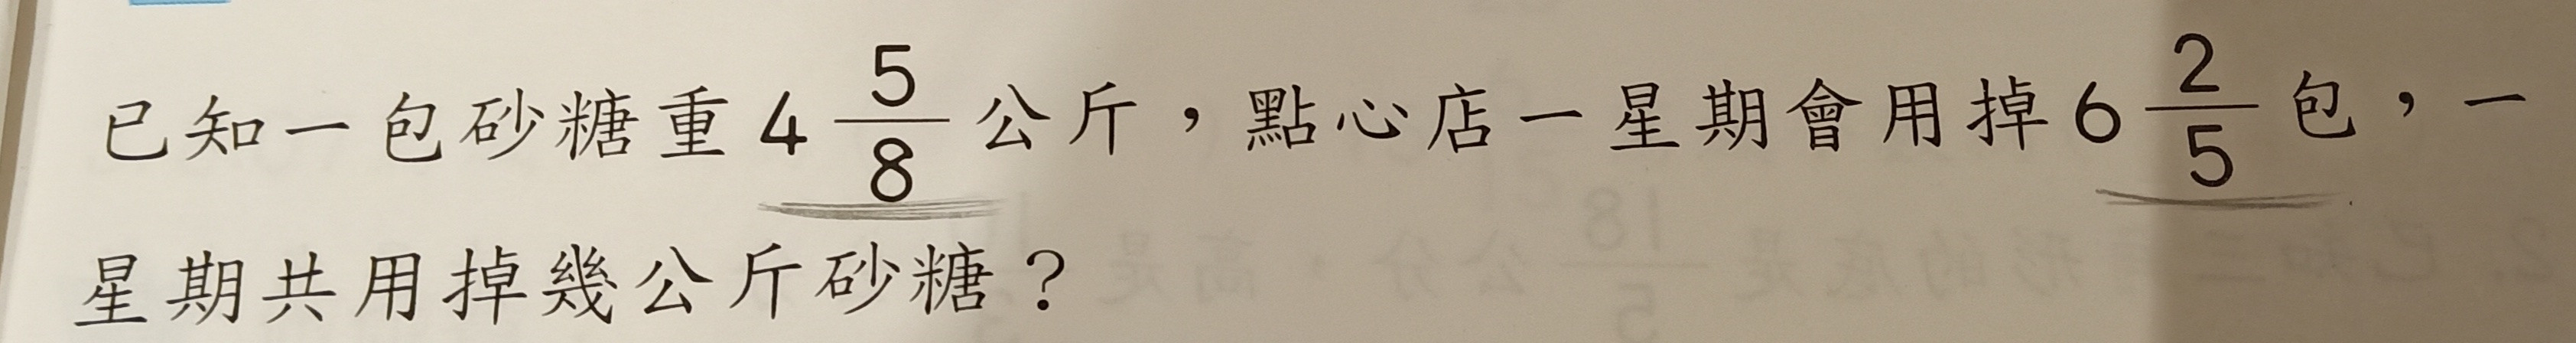 已知一包砂糖重4 5/8 公斤，點心店一星期會用掉6 2/5 包，一
星期共用掉幾公斤砂糖？